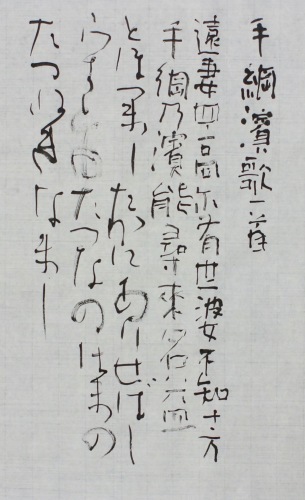 手綱濱歌一首
遠妻四高尓有世婆不知十方
手綱乃濱能尋來名益
とほつましたかにありせばし
らずともたつなのはまの
たつねきなまし